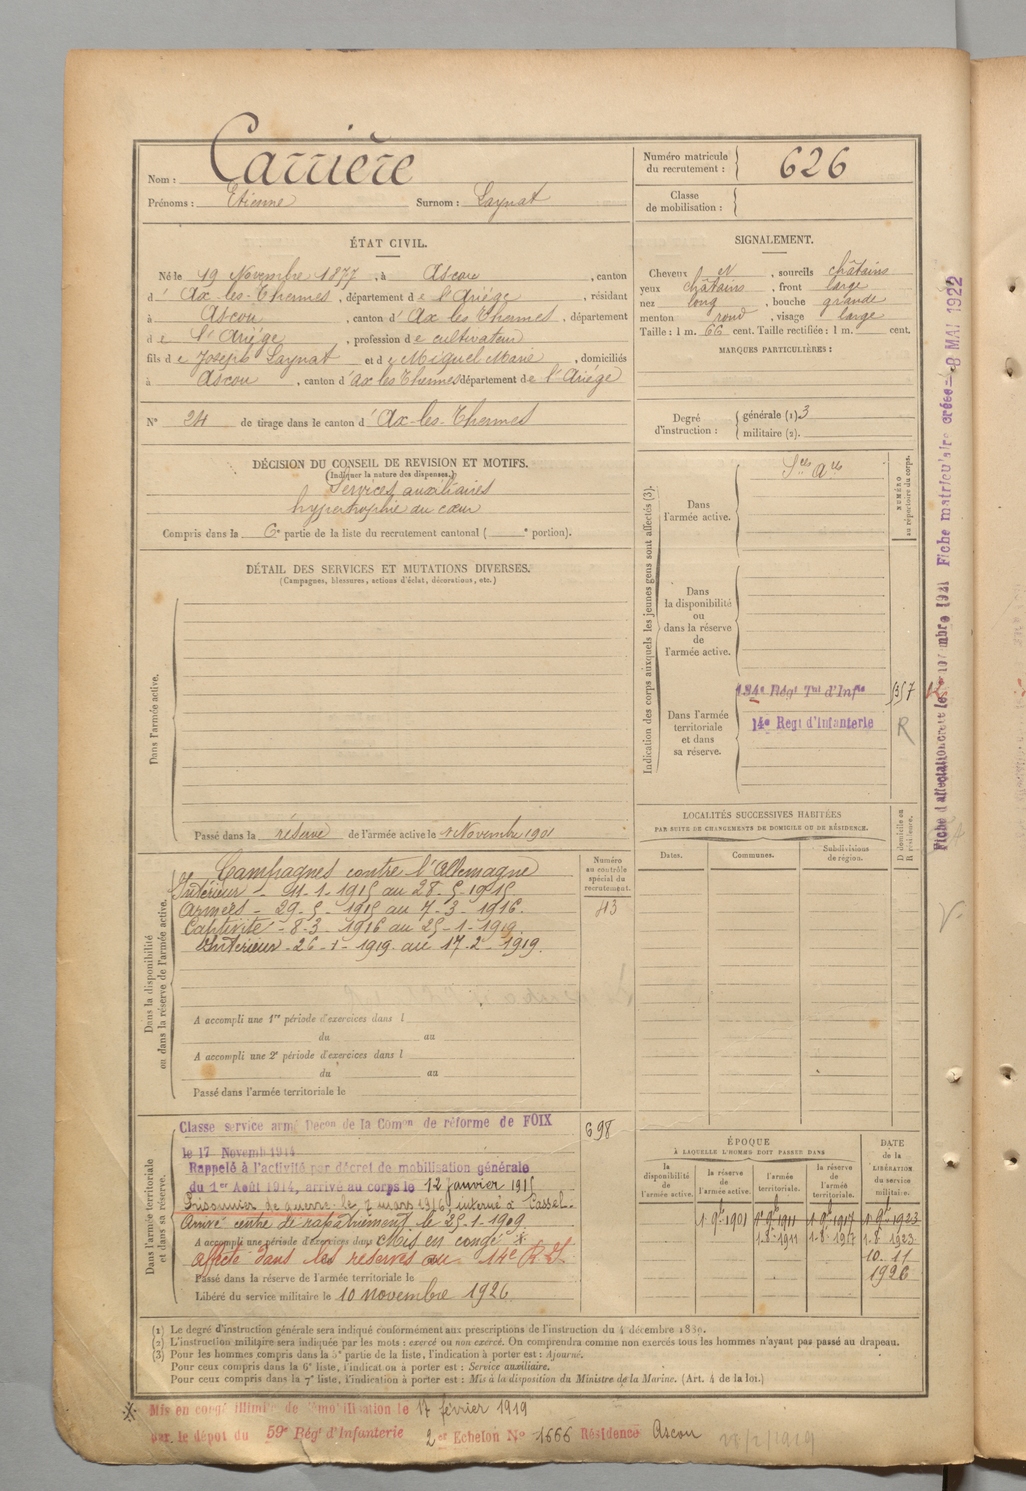 Nom : Carrière
Prénoms : Etienne Surnom : Laynat
Numéro matricule
du recrutement : 626
Classe
de mobilisation :
ÉTAT CIVIL.
Né le 19 Novembre 1877, à Ascou, canton
d' Ax-les-Thermes, département de l'Ariége, résidant
à Ascou, canton d'Ax les Thermes, département
de l'Ariége, profession de cultivateur
fils de Joseph Laynat et de Miquel Marie, domiciliés
à Ascou, canton d'ax les Thermes département de l'Ariége
N° 24 de tirage dans le canton d'Ax-les-Thermes
SIGNALEMENT.
Cheveux et, sourcils châtains
yeux châtains, front large
nez long, bouche grande
menton rond, visage large
Taille : 1 m. 66 cent. Taille rectifiée : 1 m. cent.
MARQUES PARTICULIÈRES :
Degré
d'instruction :
générale (1) 3
militaire (2).
DÉCISION DU CONSEIL DE REVISION ET MOTIFS.
(Indiquer la nature des dispenses.)
Services auxiliaires
hypertrophie du cœur
Compris dans la 6e partie de la liste du recrutement cantonal ( e portion).
DÉTAIL DES SERVICES ET MUTATIONS DIVERSES.
(Campagnes, blessures, actions d'éclat, décorations, etc.)
Dans l'armée active.
Passé dans la réserve de l'armée active le 1 Novembre 1901
Indication des corps auxquels les jeunes gens sont affectés (3).
NUMÉRO
au répertoire du corps.
Dans
l'armée active.
Sces Ares
Dans
la disponibilité
ou
dans la réserve
de
l'armée active.
Dans l'armée
territoriale
et dans
sa réserve.
134e Régt Tal d'Infie
14e Regt d'Infanterie
R
Fiche matriculaire créée 8 MAI 1922
LOCALITÉS SUCCESSIVES HABITÉES
PAR SUITE DE CHANGEMENTS DE DOMICILE OU DE RÉSIDENCE.
Dates.
Communes.
Subdivisions
de région.
D domicile ou
R résidence.
Dans la disponibilité
ou dans la réserve de l'armée active.
Numéro
au contrôle
spécial du
recrutement.
413
Campagnes contre l'Allemagne
Intérieur - 11-1-1915 au 28-5-1915
Armées - 29-5-1915 au 7-3-1916.
Captivité - 8-3-1916 au 25-1-1919.
Intérieur - 26-1-1919 au 17-2-1919.
A accompli une 1re période d'exercices dans l
du au
A accompli une 2e période d'exercices dans l
du au
Passé dans l'armée territoriale le
Dans l'armée territoriale
et dans sa réserve.
Classé service armé Décon de la Comon de réforme de FOIX
698
le 17 Novemb 1914
Rappelé à l'activité par décret de mobilisation générale
du 1er Août 1914, arrivé au corps le 12 janvier 1915
Prisonnier de guerre le 7 mars 1916 interné à Cassel.
Arrivé centre de rapatriement le 25-1-1919.
A accompli une période d'exercices dans Mis en congé *
affecté dans les réserves au 14e R I.
Passé dans la réserve de l'armée territoriale le
Libéré du service militaire le 10 novembre 1926.
ÉPOQUE
À LAQUELLE L'HOMME DOIT PASSER DANS
la
disponibilité
de
l'armée active.
la réserve
de
l'armée active.
l'armée
territoriale.
la réserve
de
l'armée
territoriale.
DATE
de la
LIBÉRATION
du service
militaire.
1 9bre 1901 1 9bre 1911 1 9bre 1917 1 9bre 1923
1-8-1911 1-8-1917 1-8-1923
10-11
1926
(1) Le degré d'instruction générale sera indiqué conformément aux prescriptions de l'instruction du 4 décembre 1889.
(2) L'instruction militaire sera indiquée par les mots : exercé ou non exercé. On comprendra comme non exercés tous les hommes n'ayant pas passé au drapeau.
(3) Pour les hommes compris dans la 5e partie de la liste, l'indication à porter est : Ajourné.
Pour ceux compris dans la 6e liste, l'indication à porter est : Service auxiliaire.
Pour ceux compris dans la 7e liste, l'indication à porter est : Mis à la disposition du Ministre de la Marine. (Art. 4 de la loi.)
* Mis en congé illimité de démobilisation le 17 février 1919
par le dépôt du 59e Régt d'Infanterie 2e Echelon N° 1666 Résidence Ascou